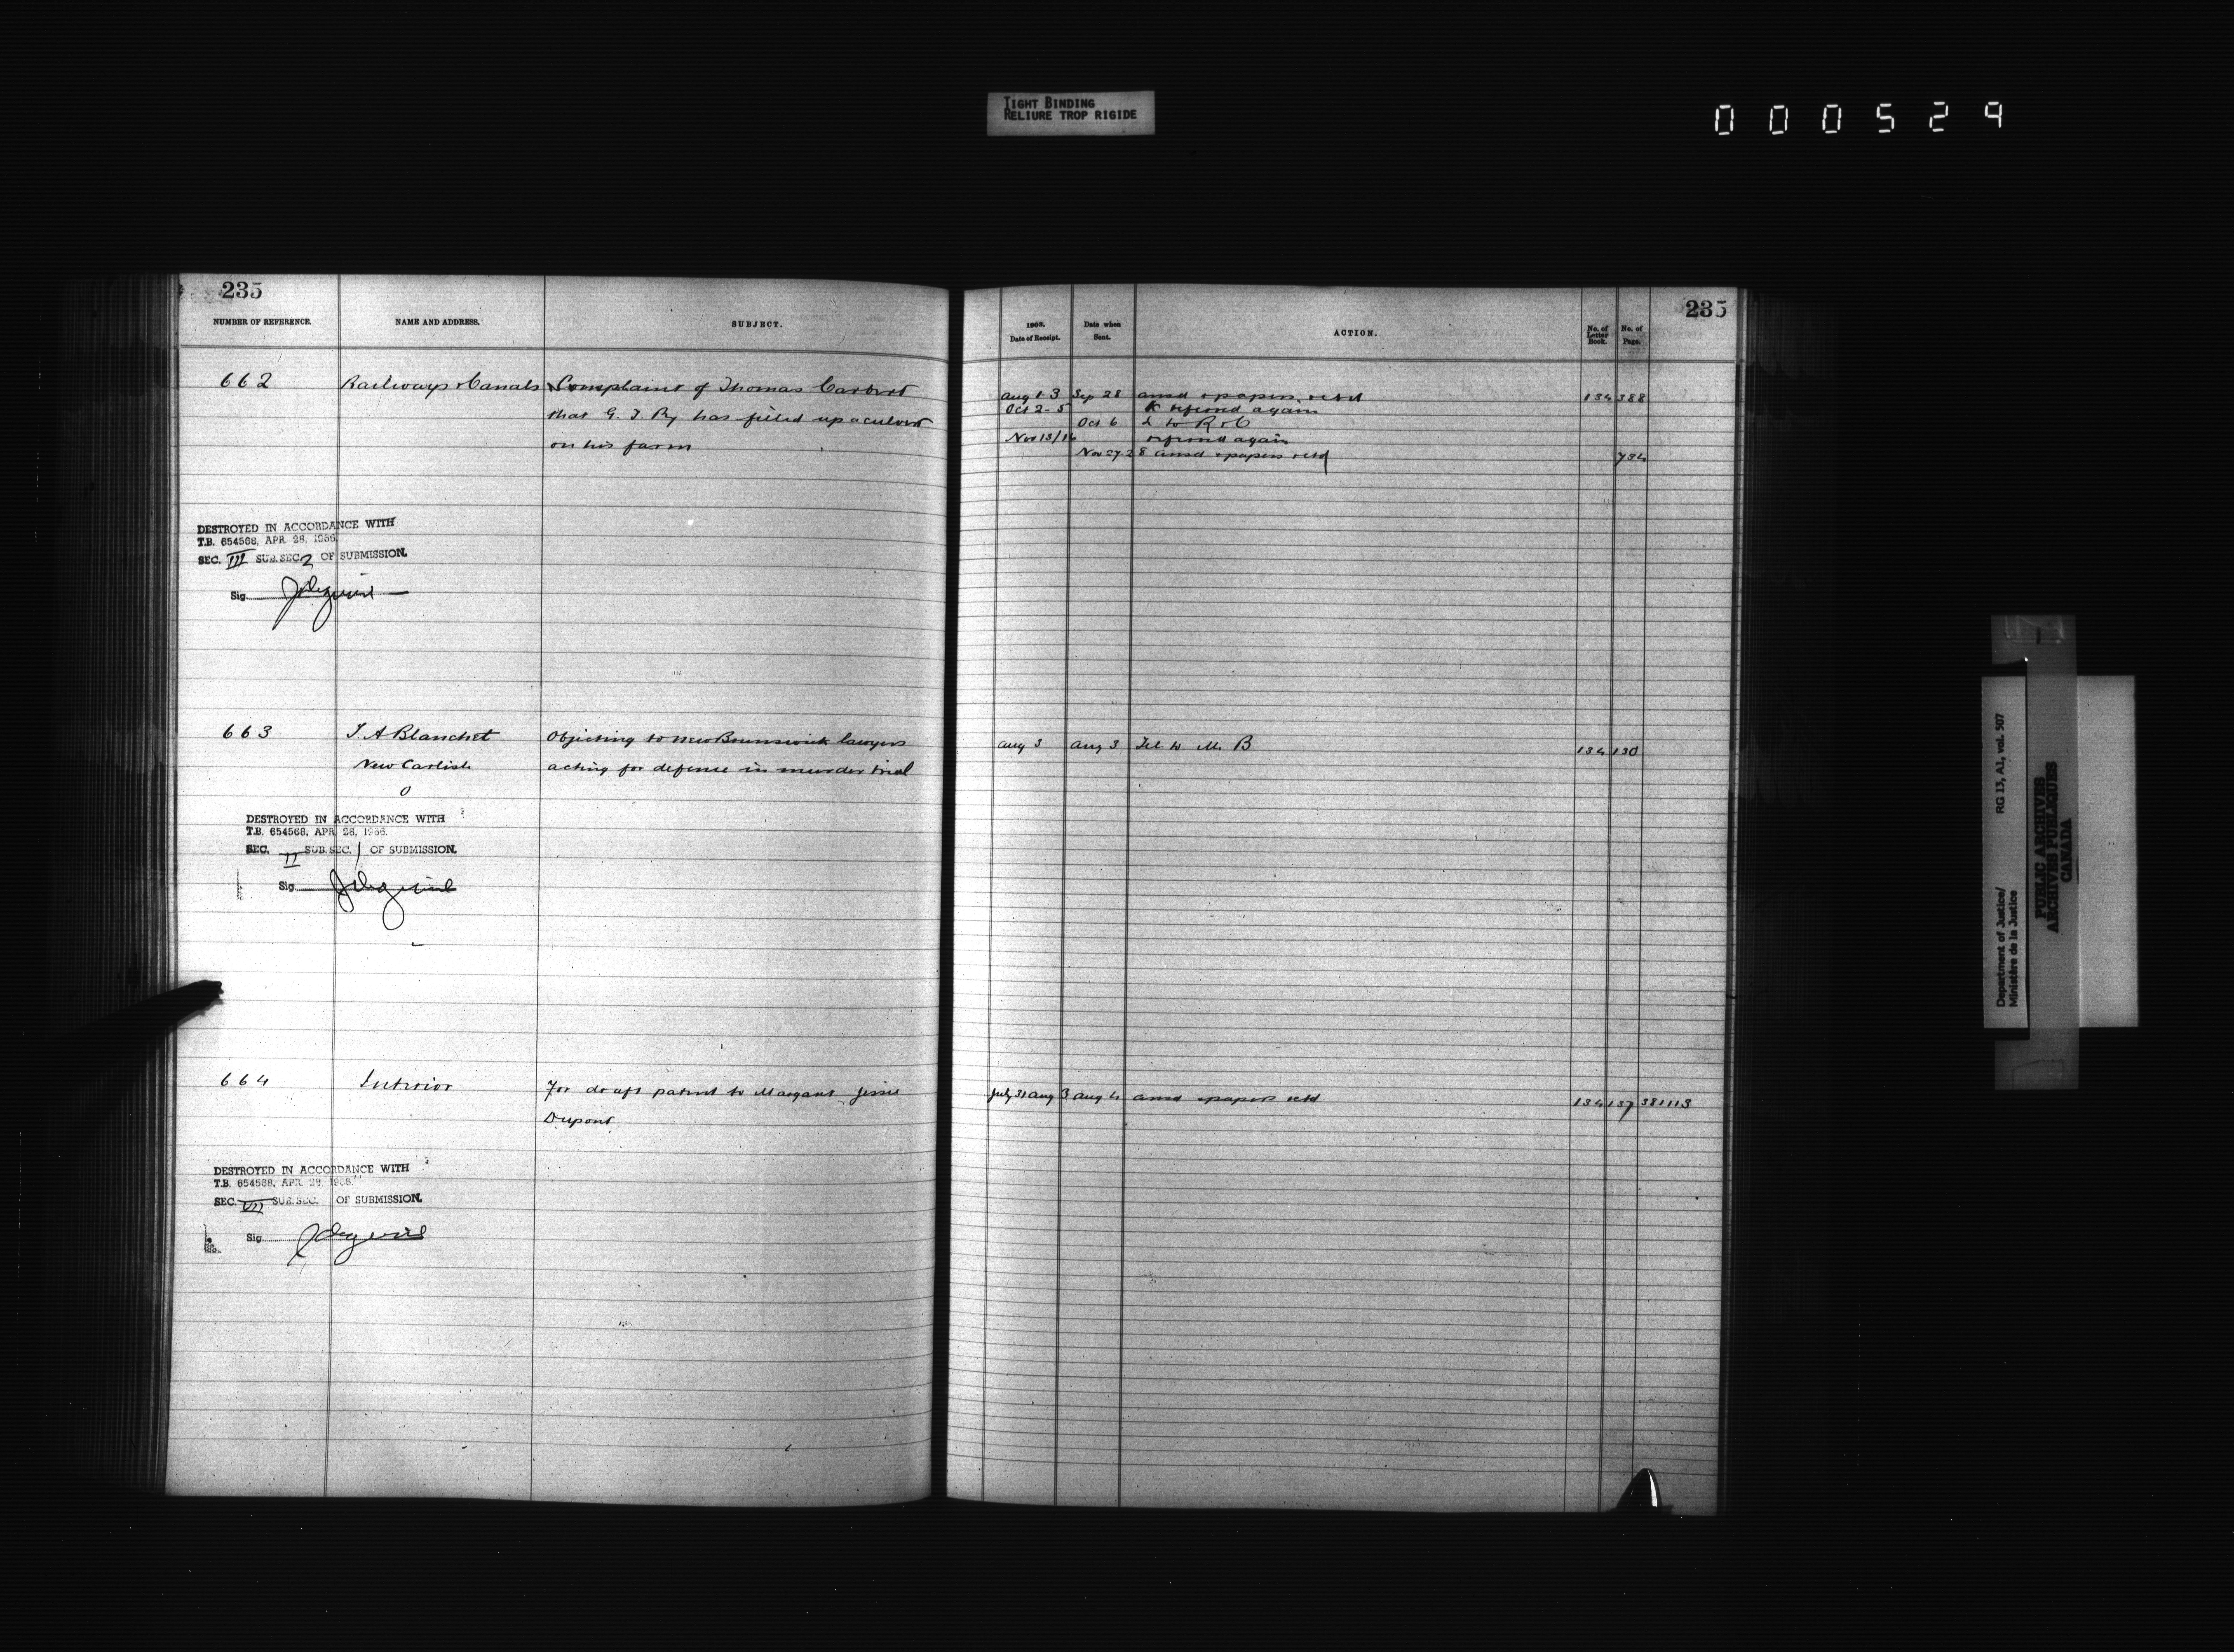 TIGHT BINDING
RELIURE TROP RIGIDE
000529
235
NUMBER OF REFERENCE. NAME AND ADDRESS. SUBJECT.
662 Railways & Canals Complaint of Thomas
that G. T. Ry has filled up a culvert
on his farm
DESTROYED IN ACCORDANCE WITH
T.B. 654568, APR. 26, 1956.
SEC. III SUB. SEC. 2 OF SUBMISSION.
Sig.
663 J A Blanchet Objecting to new Brunswick lawyers
New Carlisle acting for defense in murder trial
DESTROYED IN ACCORDANCE WITH
T.B. 654568, APR. 26, 1956.
SEC. II SUB. SEC. 1 OF SUBMISSION.
Sig.
664 Interior For draft patent to Margaret Jessie
Dupont
DESTROYED IN ACCORDANCE WITH
T.B. 654568, APR. 26, 1956.
SEC. VII SUB. SEC. OF SUBMISSION.
Sig.
235
Date of Receipt. Date when Sent. ACTION. No. of Letter Book. No. of Page.
Aug 1-3 Sep 28 ansd & papers retd 134 388
Oct 2-5 referred again
Oct 6 L to R & C
Nov 13/16 referred again
Nov 27 28 ansd & papers retd
Aug 3 Aug 3 Tel to M. B 134 130
July 31 Aug 3 Aug 4 ansd & papers retd 134 137 381113
Department of Justice/
Ministère de la Justice
RG 13, A1, vol. 507
PUBLIC ARCHIVES
ARCHIVES PUBLIQUES
CANADA